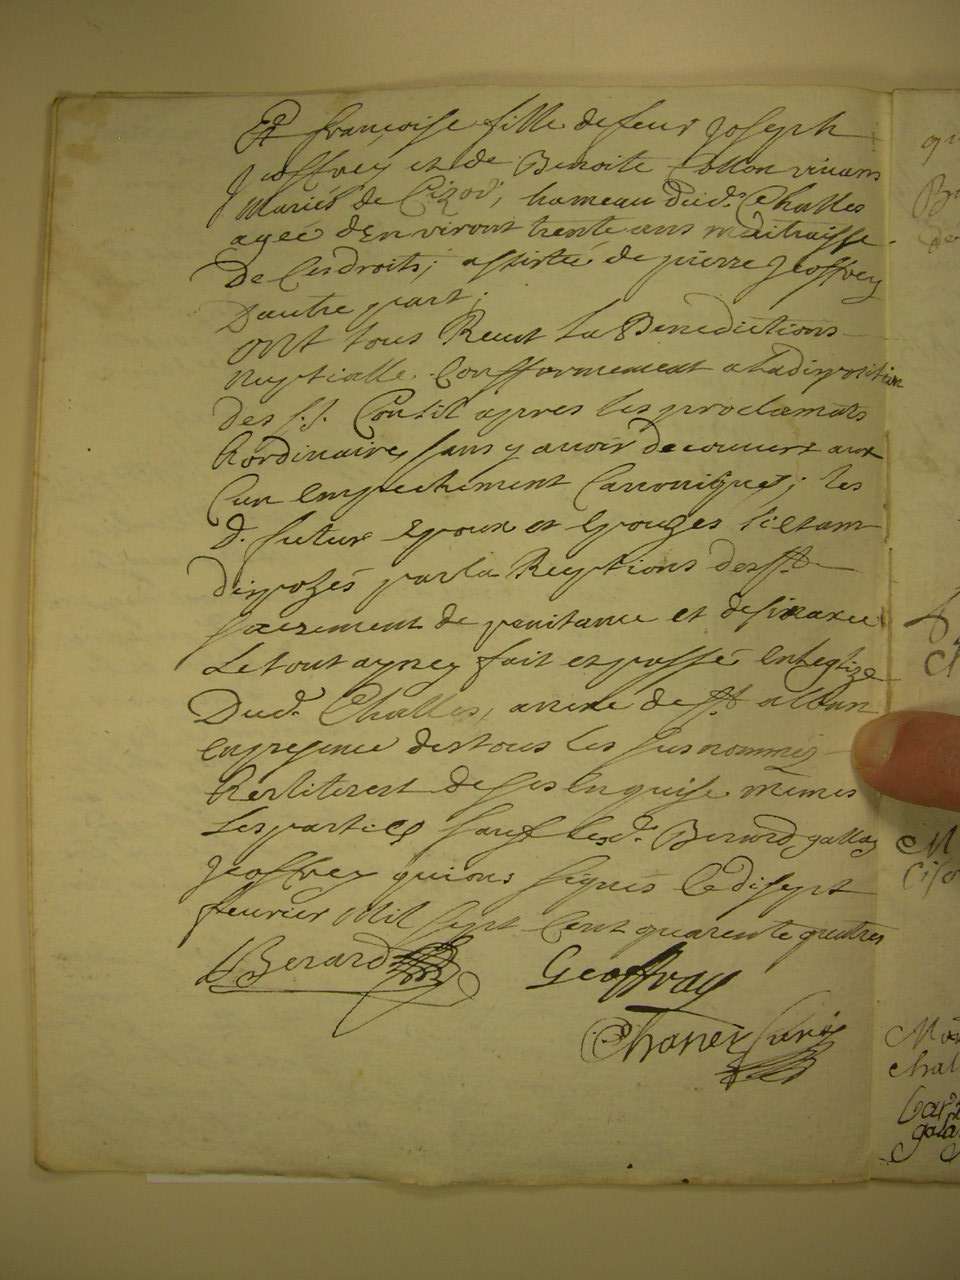 Et françoise fille de feu Joseph
Joffrey et de Benoite Collon vivans
Mariés de Cizod, hameau dud. Challes
agée d'Environt trente ans maitraisse
De ses droits; assistée de pierre Geoffrey
D'autre part;
ONt tous Receut La Benedictions
Nuptialle Conformement a la disposition
des S.S. Consil apres les proclamats
hordinaires sans y avoir decouvert auх
Cun empechement Canonique; les
d. futur Epoux et Epouzes s'estant
dispozés par la Reptions des St
sacrement de penitance et
Le tout ayney fait et passé en Leglize
Dud. Challes, anexe de St alban
en presence des tous les susnommés
de ses enquise
Les parties sauf lesd. Berard gallay
Geoffrey qui ons signés Le disept
feurier Mil sept Cent quarente quatres
Berard
Geoffray
Charier Curé